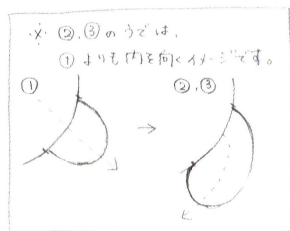 ※ ②,③のうでは、
①よりも内を向くイメージです。
①
②,③